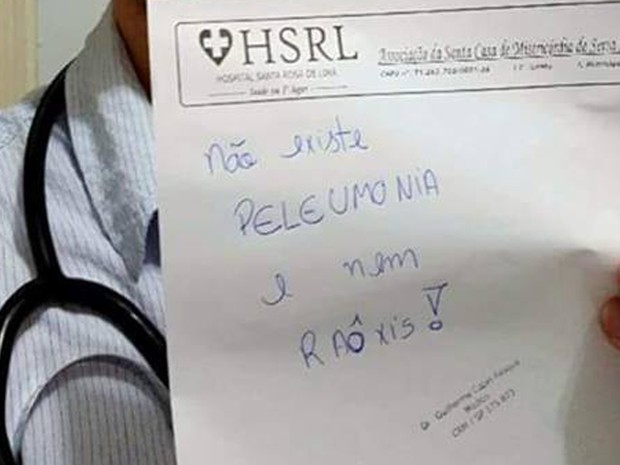 HSRL
HOSPITAL SANTA ROSA DE LIMA
Saúde em 1º lugar
Associação da Santa Casa de Misericórdia de Serra
não existe
PELEUMONIA
e nem
RAÔXIS!
Dr. Guilherme Capel
Médico